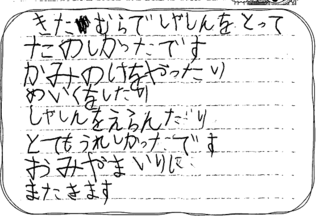 きたむらでしゃしんをとって
たのしかったです
かみのけをやったり
めいくをしたり
しゃしんをえらんだり
とてもうれしかったです
おみやまいりに
またきます